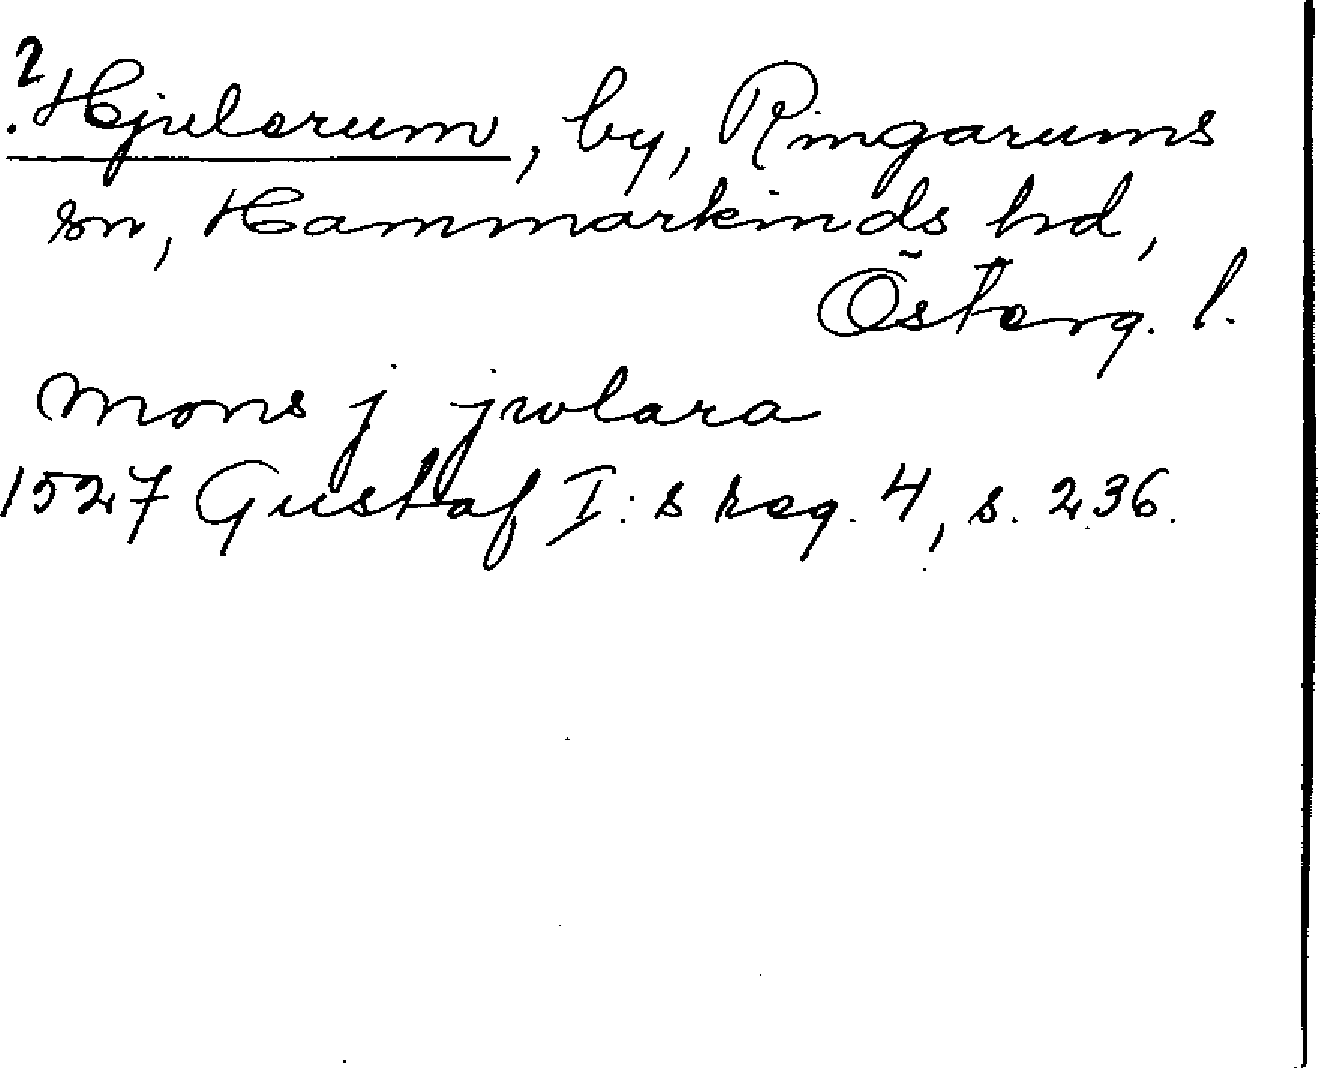 ? Hjulerum, by, Ringarums
sn, Hammarkinds hd,
Österg. l.
Mons j jwlara
1527 Gustaf I:s reg. 4, s. 236.